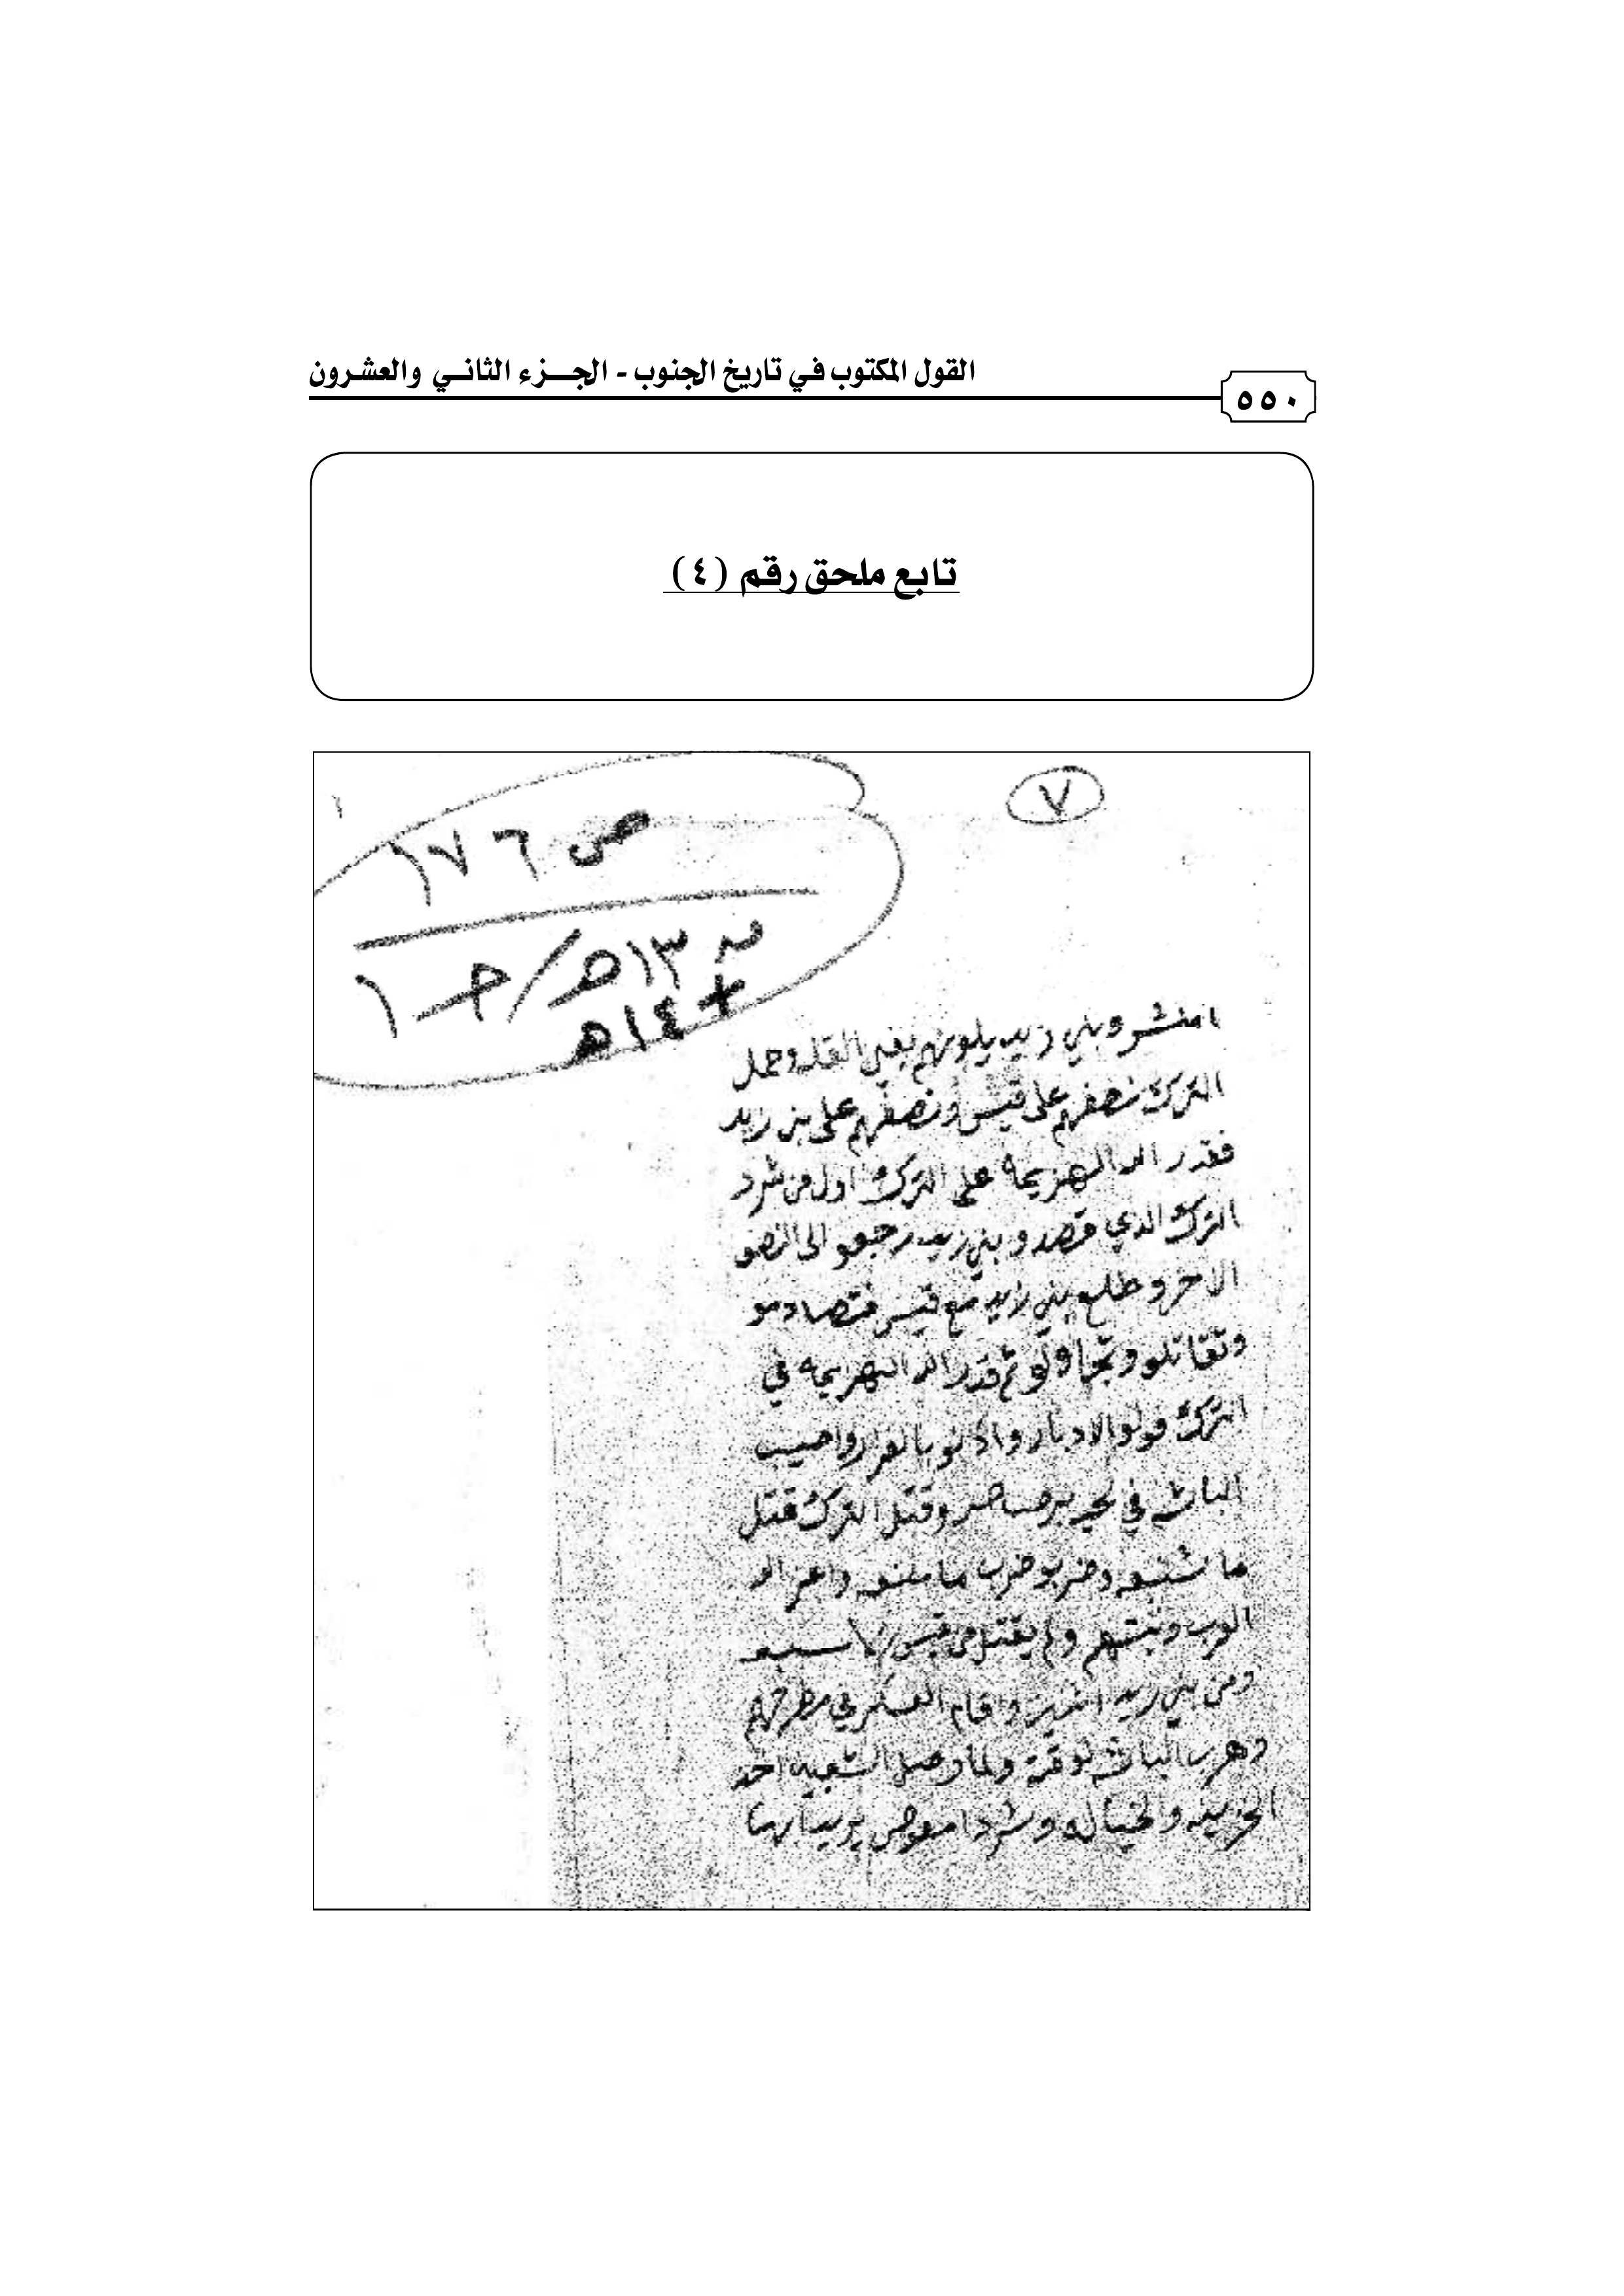 القول المكتوب في تاريخ الجنوب - الجـــزء الثانـــي والعشــرون
٥٥٠
تابع ملحق رقم (٤)
٧
ص ١٧٦
١٣هـ/ حـ ١
+ ١٤هـ
وبني زيد يلونهم وحمل
الترك نصفهم على قيس ونصفهم على بني زيد
فقدر الله الهزيمه على الترك اول من شرد
الترك الذي قصدو بني زيد رجعو الى النصف
الاخر وطلع بني زيد مع قيس فتصادمو
وتقاتلو وتجاولو ثم قدر الله الهزيمه في
الترك فولو الادبار بالفرار واصيب
الباشه في وقتل الترك قتل
ما شنيع وضربو ضرب ما واعز الله
العرب وثبتهم ولم يقتل من قيس
ومن بني زيد اثنين وقام العسكر في مطرحهم
وهرب الباشه لوقته ولما وصل الشعبين اخذ
الخزينه والخياله وشرد